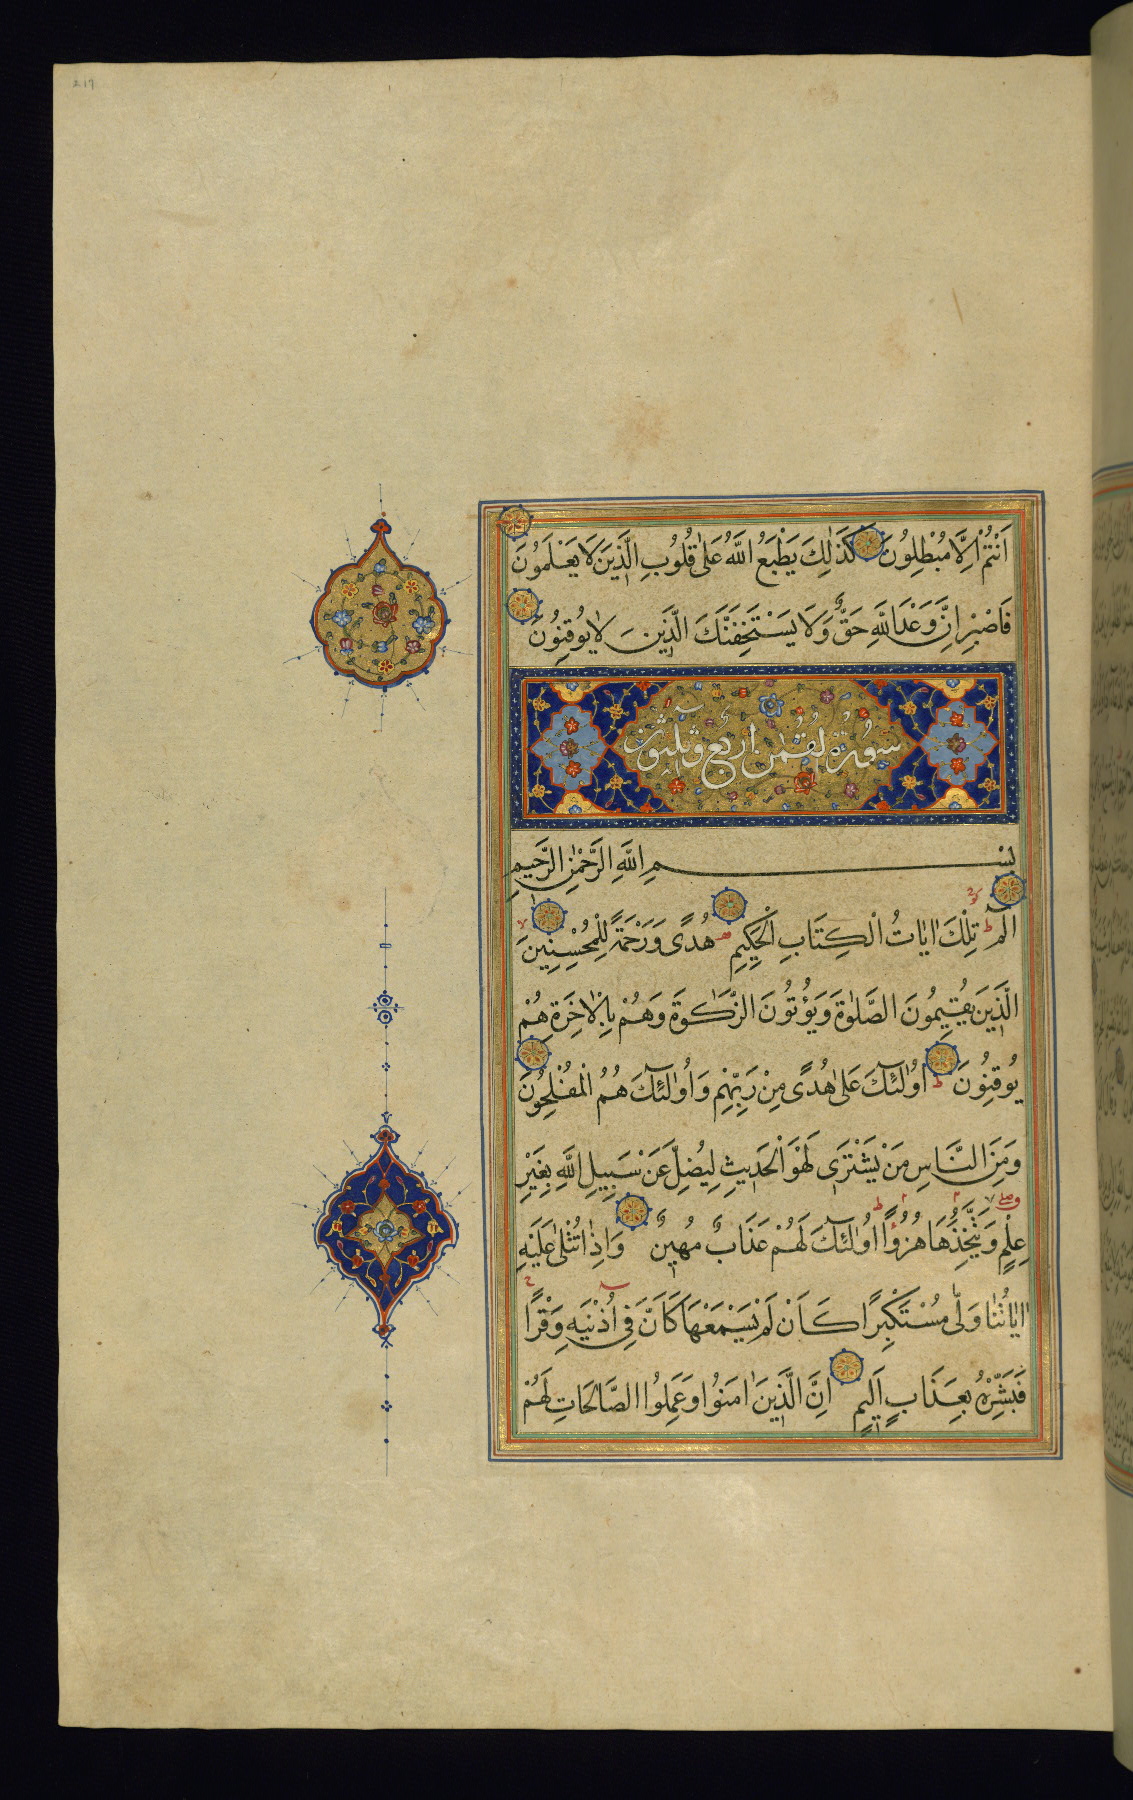 217
اَنْتُمْ اِلَّا مُبْطِلُونَ كَذٰلِكَ يَطْبَعُ اللّٰهُ عَلٰى قُلُوبِ الَّذِينَ لَا يَعْلَمُونَ
فَاصْبِرْ اِنَّ وَعْدَ اللّٰهِ حَقٌّ وَلَا يَسْتَخِفَّنَّكَ الَّذِينَ لَا يُوقِنُونَ
سورة لقمن اربع وثلثون
بِسْمِ اللّٰهِ الرَّحْمٰنِ الرَّحِيمِ
الٓمٓ تِلْكَ اٰيَاتُ الْكِتَابِ الْحَكِيمِ هُدًى وَرَحْمَةً لِلْمُحْسِنِينَ
الَّذِينَ يُقِيمُونَ الصَّلٰوةَ وَيُؤْتُونَ الزَّكٰوةَ وَهُمْ بِالْاٰخِرَةِ هُمْ
يُوقِنُونَ اُولٰٓئِكَ عَلٰى هُدًى مِنْ رَبِّهِمْ وَاُولٰٓئِكَ هُمُ الْمُفْلِحُونَ
وَمِنَ النَّاسِ مَنْ يَشْتَرِى لَهْوَ الْحَدِيثِ لِيُضِلَّ عَنْ سَبِيلِ اللّٰهِ بِغَيْرِ
عِلْمٍ وَيَتَّخِذُهَا هُزُؤًا اُولٰٓئِكَ لَهُمْ عَذَابٌ مُهِينٌ وَاِذَا تُتْلٰى عَلَيْهِ
اٰيَاتُنَا وَلّٰى مُسْتَكْبِرًا كَاَنْ لَمْ يَسْمَعْهَا كَاَنَّ فِى اُذُنَيْهِ وَقْرًا
فَبَشِّرْهُ بِعَذَابٍ اَلِيمٍ اِنَّ الَّذِينَ اٰمَنُوا وَعَمِلُوا الصَّالِحَاتِ لَهُمْ